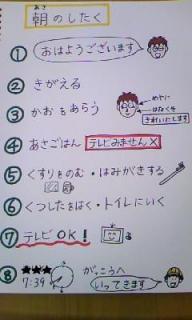 あさ
朝のしたく
① おはようございます
② きがえる
③ かおをあらう
めやに
はなくそ
きれいにします
④ あさごはん テレビみません×
⑤ くすりをのむ・はみがきする
⑥ くつしたをはく・トイレにいく
⑦ テレビOK!
⑧ ★★★
7:39
がっこうへ
いってきます